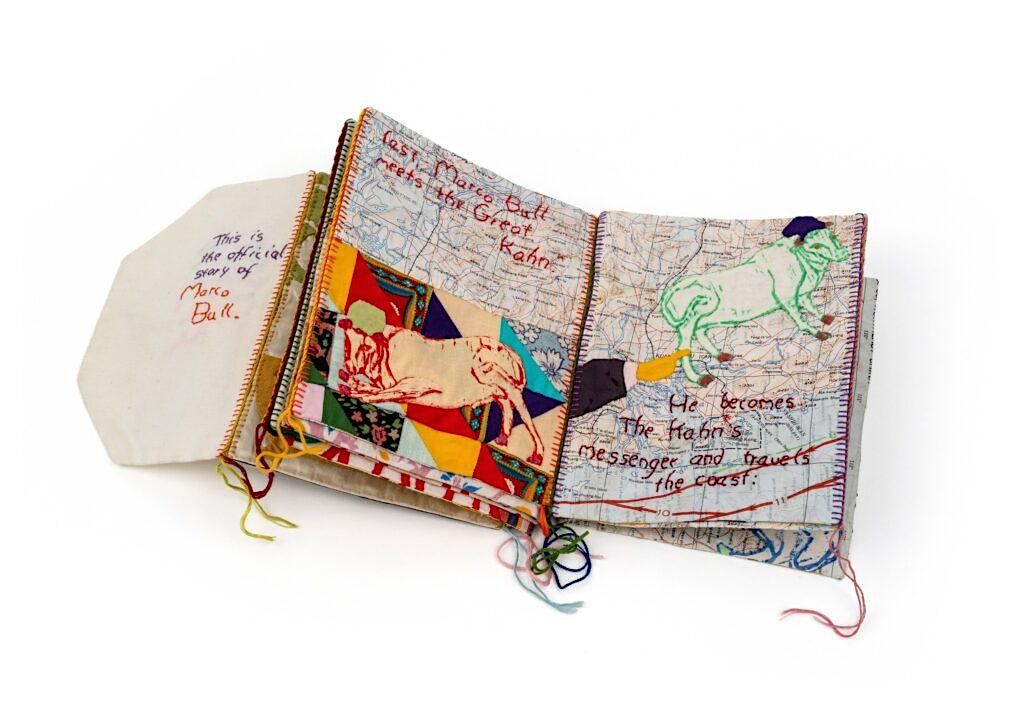 This is
the official
story of
Marco
Bull.
last Marco Bull
meets the Great
Kahn.
He becomes
The Kahn's
messenger and travels
the coast:
10
11